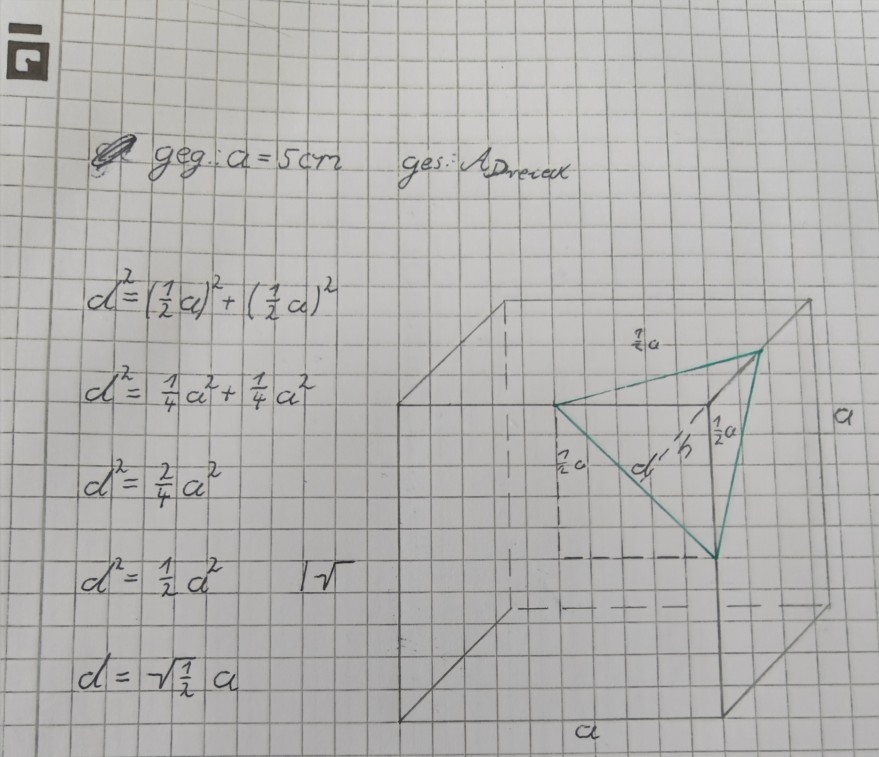 geg.: a = 5cm ges.: A_Dreieck
d² = (½a)² + (½a)²
d² = ¼a² + ¼a²
d² = 2/4 a²
d² = ½a² |√
d = √½ a
½a
a
½a
½a
d
h
a